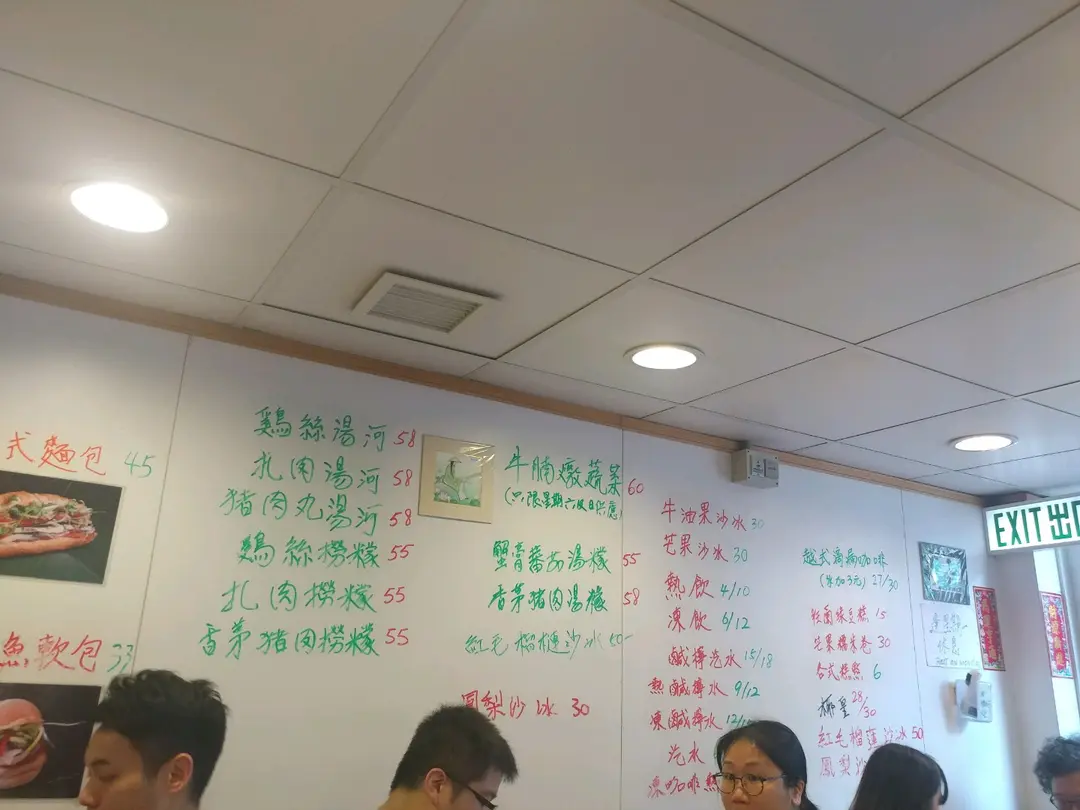 式麵包 45
魚軟包 33
鷄絲湯河 58
扎肉湯河 58
猪肉丸湯河 58
鷄絲撈檬 55
扎肉撈檬 55
香茅猪肉撈檬 55
牛腩燉蔬菜 60
(只限星期六及日供應)
蟹膏蕃茄湯檬 55
香茅猪肉湯檬 58
紅毛榴槤沙冰 50
鳳梨沙冰 30
牛油果沙冰 30
芒果沙冰 30
熱飲 4/10
凍飲 6/12
鹹檸汽水 15/18
熱鹹檸水 9/12
凍鹹檸水
汽水
凍咖啡
越式滴漏咖啡
(凍加3元) 27/30
15
芒果糯米卷 30
各式糕點 6
椰皇 28/30
紅毛榴槤沙冰 50
鳳梨沙
星期一
休息
EXIT 出口